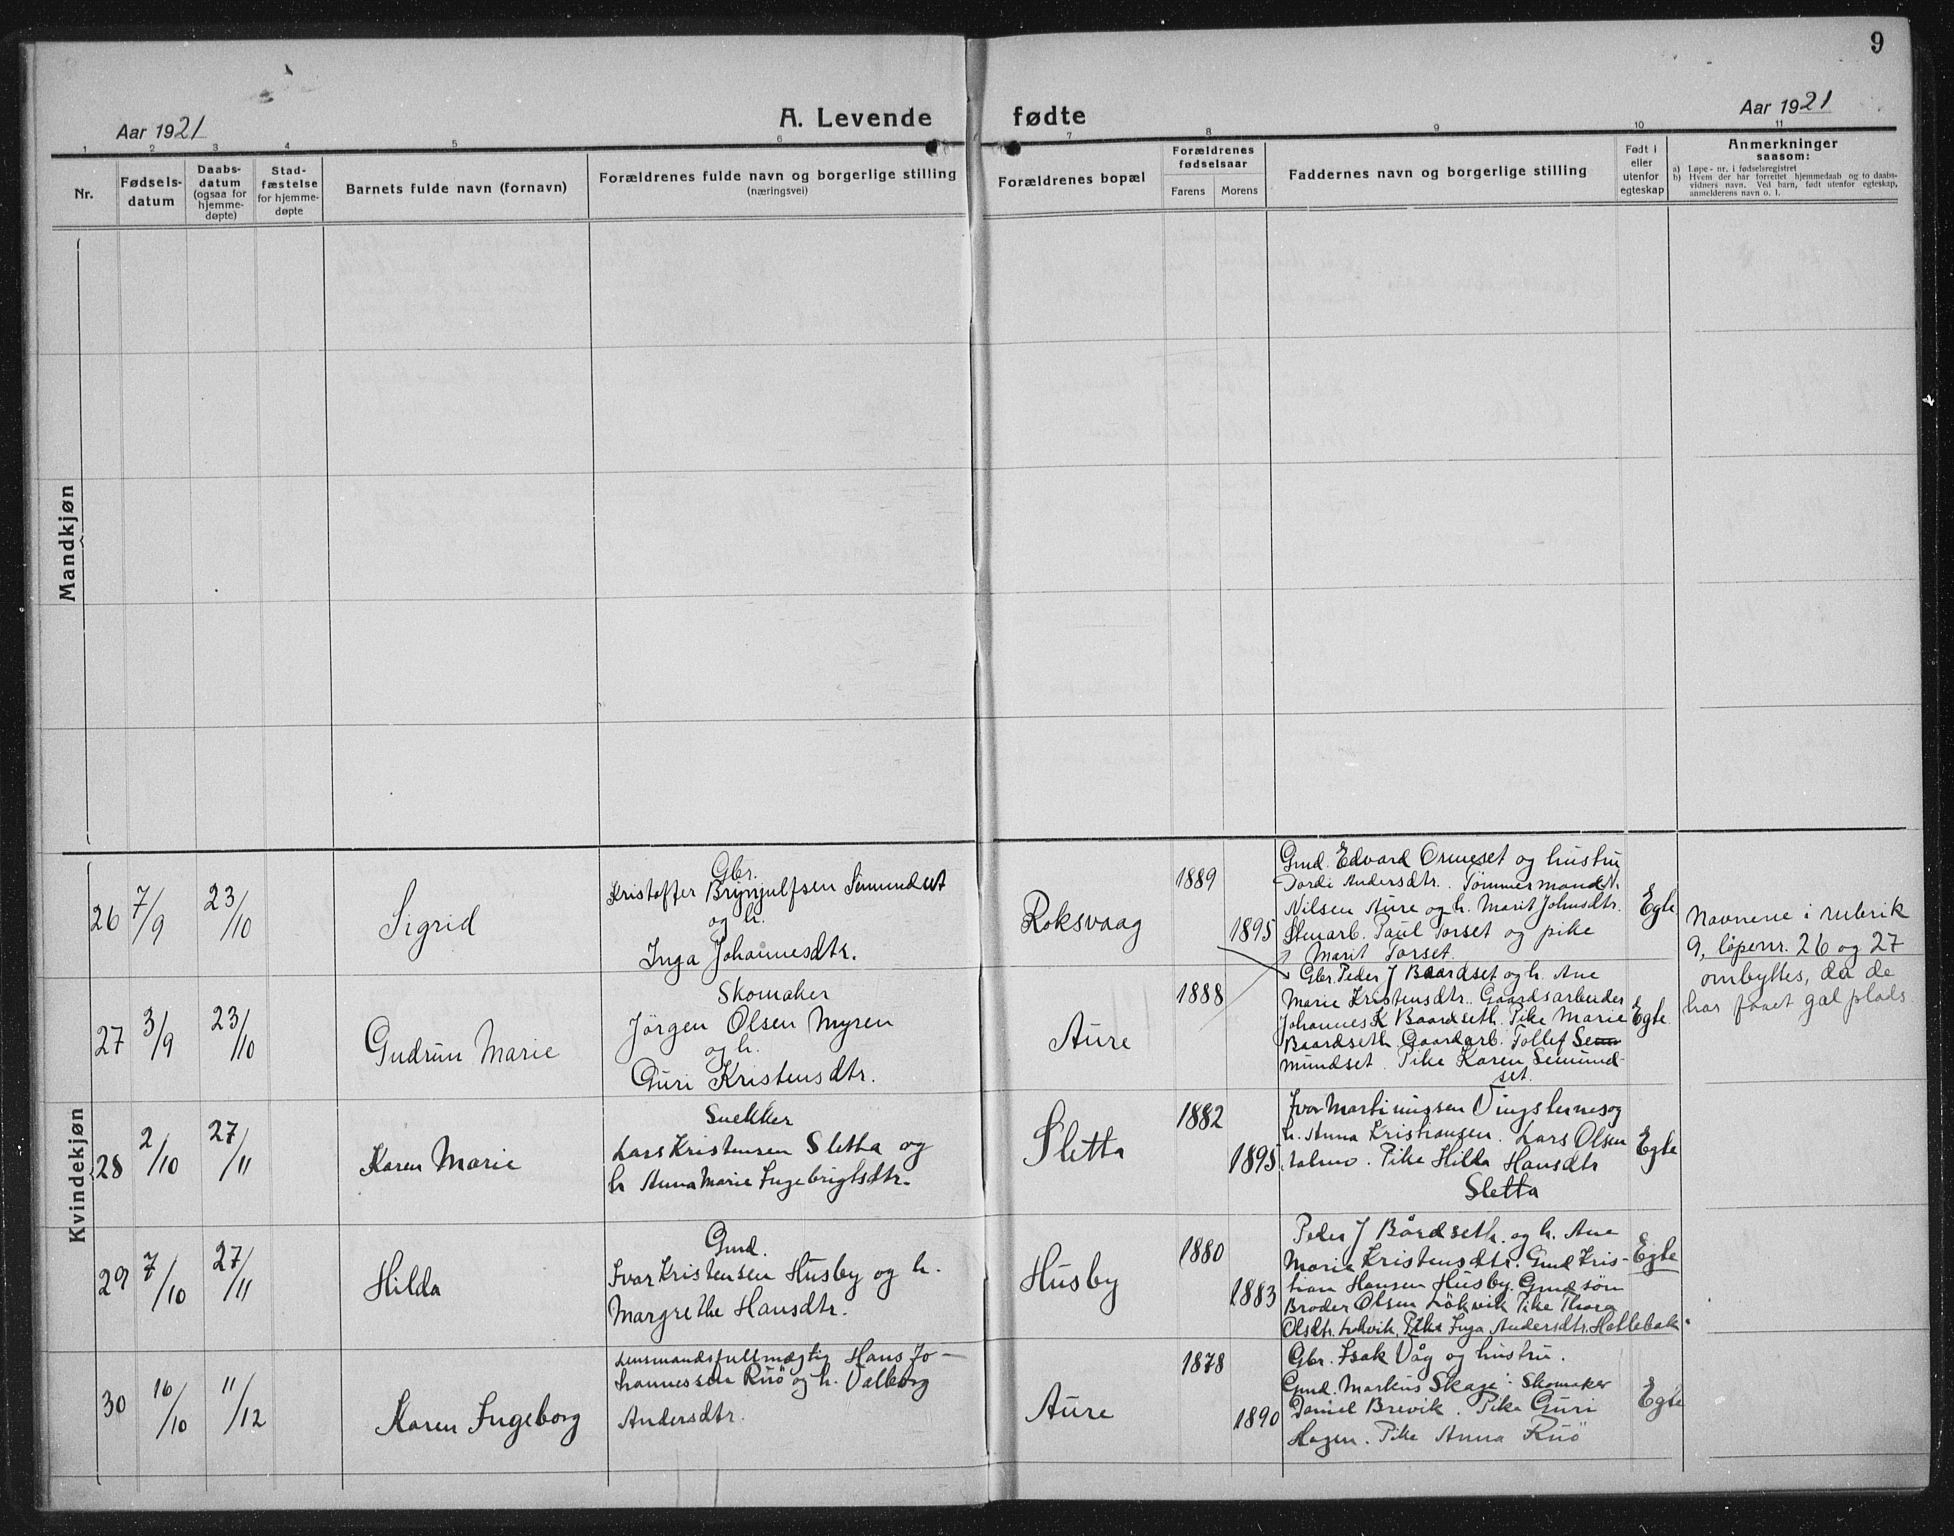 9
Aar 1921
A. Levende fødte
Aar 1921
1 2 3 4 5 6 7 8 9 10 11
Nr.
Fødsels-
datum
Daabs-
datum
(ogsaa for
hjemme-
døpte)
Stad-
fæstelse
for hjemme-
døpte
Barnets fulde navn (fornavn)
Forældrenes fulde navn og borgerlige stilling
(næringsvei)
Forældrenes bopæl
Forældrenes
fødselsaar
Farens Morens
Faddernes navn og borgerlige stilling
Født i
eller
utenfor
egteskap
Anmerkninger
saasom:
a) Løpe-nr. i fødselsregistret
b) Hvem der har forrettet hjemmedaab og to daabs-
vidners navn. Ved barn, født utenfor egteskap,
anmelderens navn o. l.
Mandkjøn
Kvindekjøn
26 7/9 23/10
Sigrid
Gbr.
Kristoffer Brynjulfsen Semundset
og h.
Inga Johannesdtr.
Roksvaag
1889
1895
Gmd. Edvard Ormeset og hustru
Jordi Andersdtr. Tømmermand N.
Nilsen Aure og h. Marit Johnsdtr.
Stenarb. Paul Torset og pike
Marit Torset.
Egte
Navnene i rubrik
9, løpenr. 26 og 27
ombyttes, da de
har faaet gal plads
27 3/9 23/10
Gudrun Marie
Skomaker
Jörgen Olsen Myren
og h.
Guri Kristensdtr.
Aure
1888
Gbr. Peder J Baardset og h. Ane
Marie Kristensdtr. Gaardsarbeider
Johannes K Baardseth. Pike Marie
Baardseth. Gaardarb. Tollef Se
mundset. Pike Karen Semund-
set.
Egte
28 2/10 27/11
Karen Marie
Snekker
Lars Kristensen Sletta og
h Anna Marie Ingebrigtsdtr.
Sletta
1882
1895
Ivar Martinussen Vingsternes og
h. Anna Kristiansen. Lars Olsen
. Pike Hilda Hansdtr
Sletta
Egte
29 7/10 27/11
Hilda
Gmd.
Ivar Kristensen Husby og h.
Margrethe Hansdtr.
Husby
1880
1883
Peder J Bårdseth. og h. Ane
Marie Kristensdtr. Gmd Kris-
tian Hansen Husby. Gmdsön
Broder Olsen Lökvik Pike Thora
Olsdtr. Lökvik. Pike Inga Andersdtr. Hellebak.
Egte
30 16/10 11/12
Karen Ingeborg
Lensmandsfullmægtig Hans Jo-
hannessen Ruö og h. Valborg
Andersdtr.
Aure
1878
1890
Gbr. Isak Våg og hustru.
Gmd. Markus Skage. Skomaker
Daniel Brevik. Pike Guri
Hagen. Pike Anna Ruö
Egte